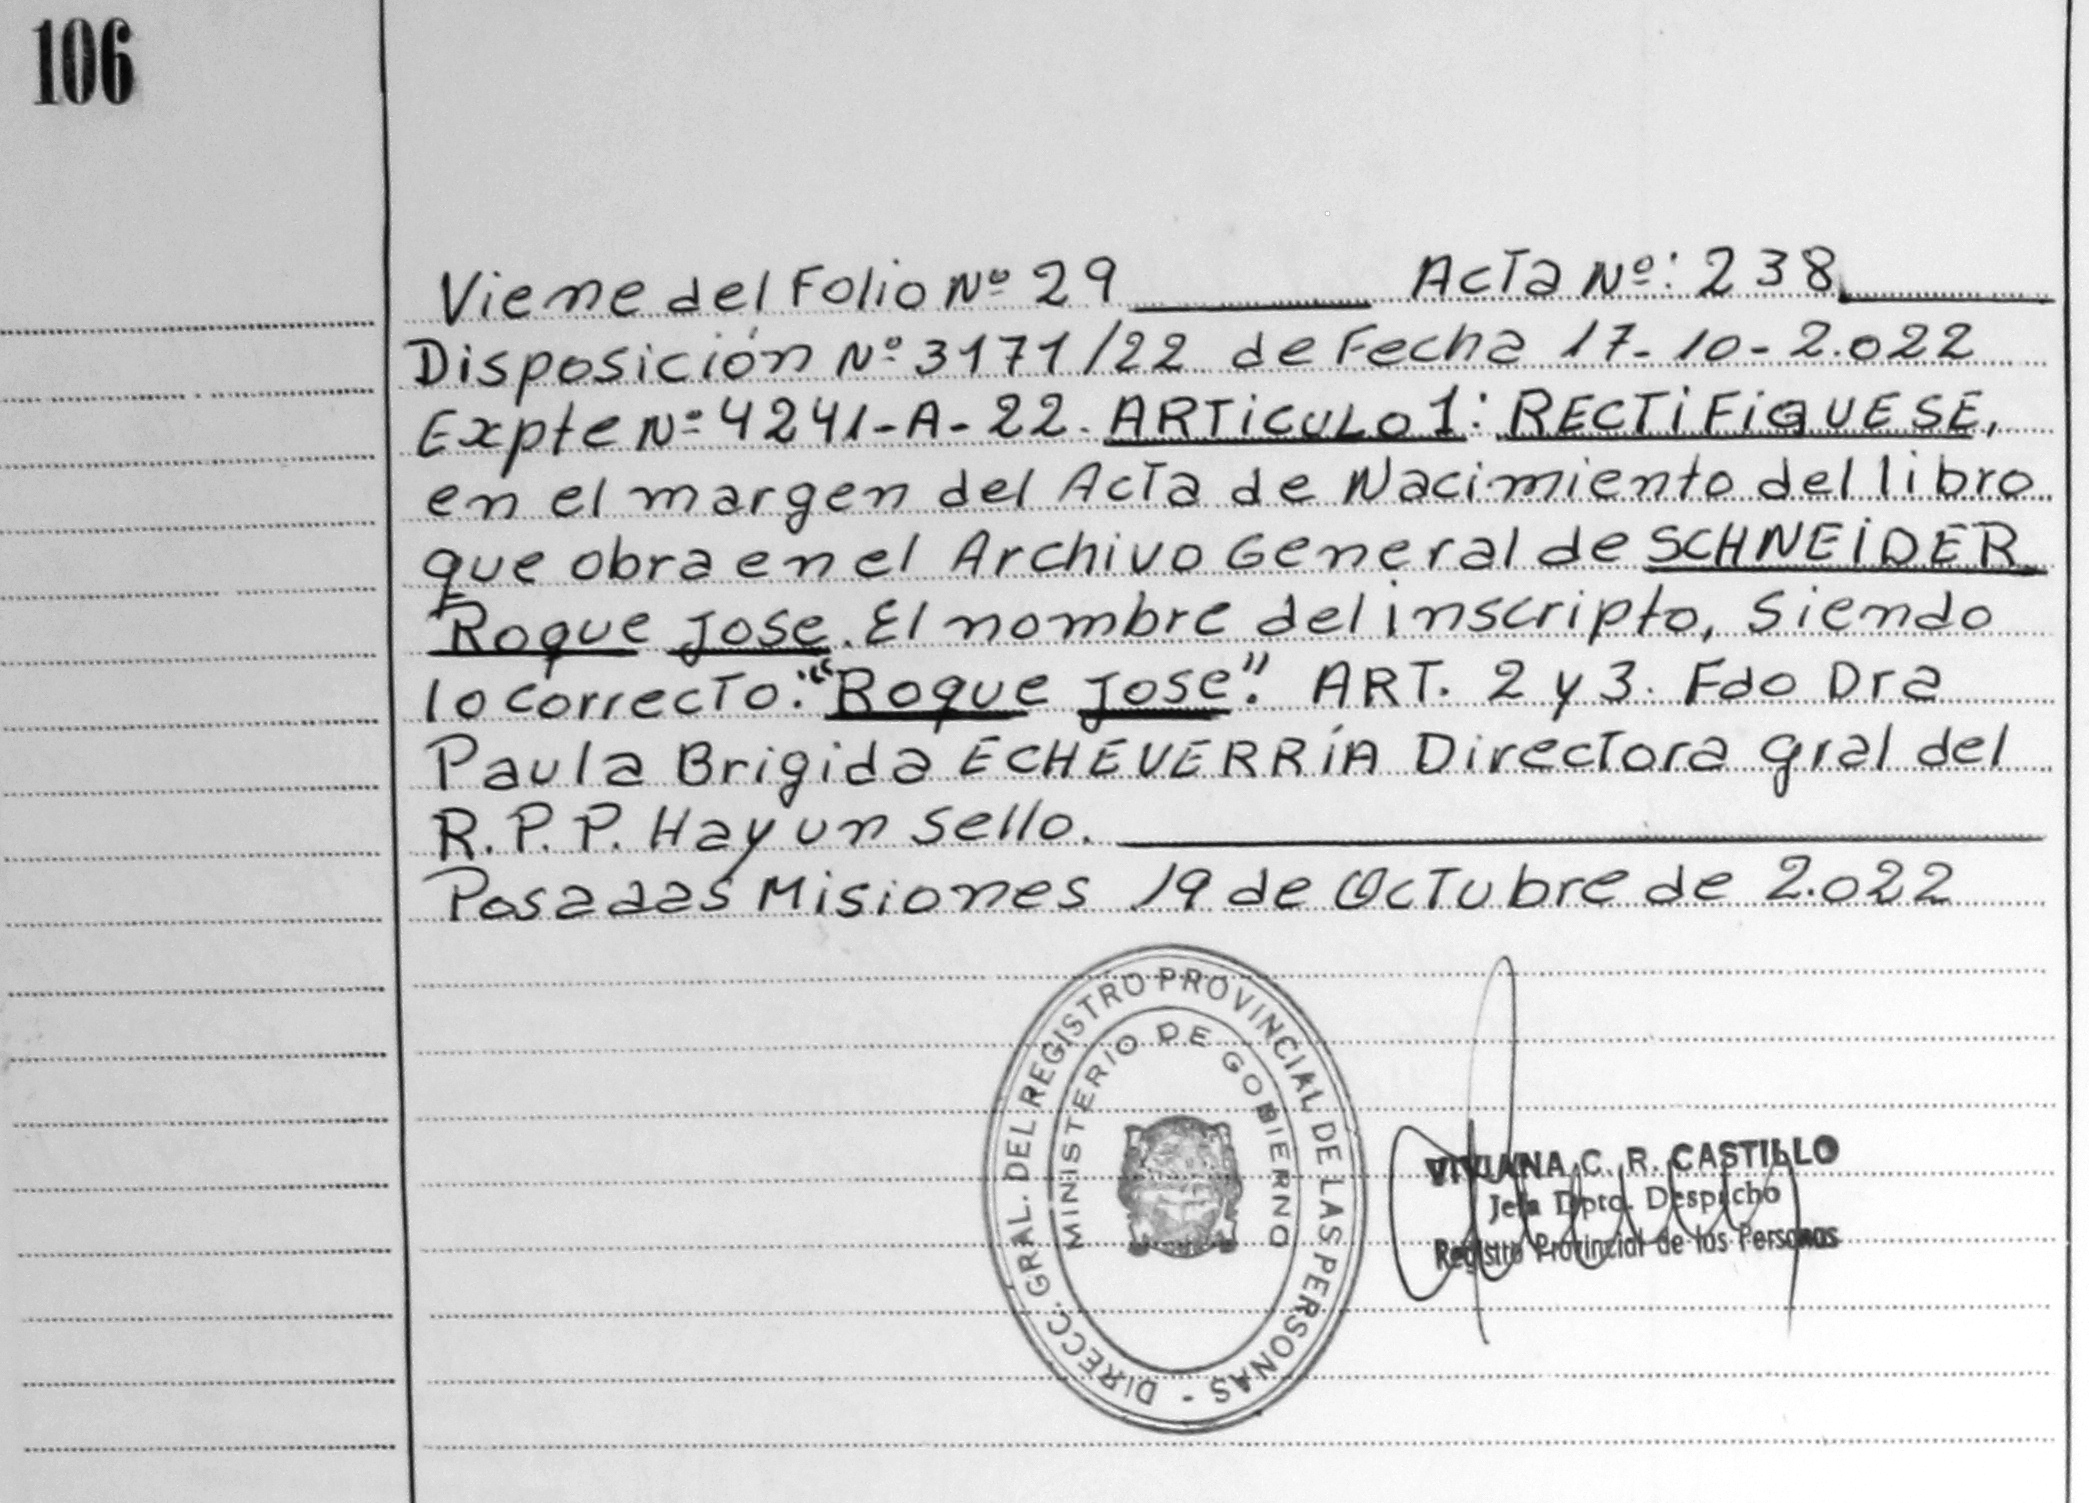 106
Viene del Folio Nº 29 Acta Nº: 238
Disposición Nº 3171/22 de Fecha 17-10-2.022
Expte Nº 4241-A-22. ARTiCULO 1: RECTiFiQUESE,
en el margen del Acta de Nacimiento del libro
que obra en el Archivo General de SCHNEiDER
Roque Jose. El nombre del inscripto, Siendo
lo correcto: "Roque Jose". ART. 2 y 3. Fdo Dra
Paula Brigida ECHEVERRíA Directora gral del
R.P.P. Hay un sello.
Posadas Misiones 19 de Octubre de 2.022
DIRECC. GRAL. DEL REGISTRO PROVINCIAL DE LAS PERSONAS -
MINISTERIO DE GOBIERNO
VIVIANA C. R. CASTILLO
Jefa Dpto. Despacho
Registro Provincial de las Personas